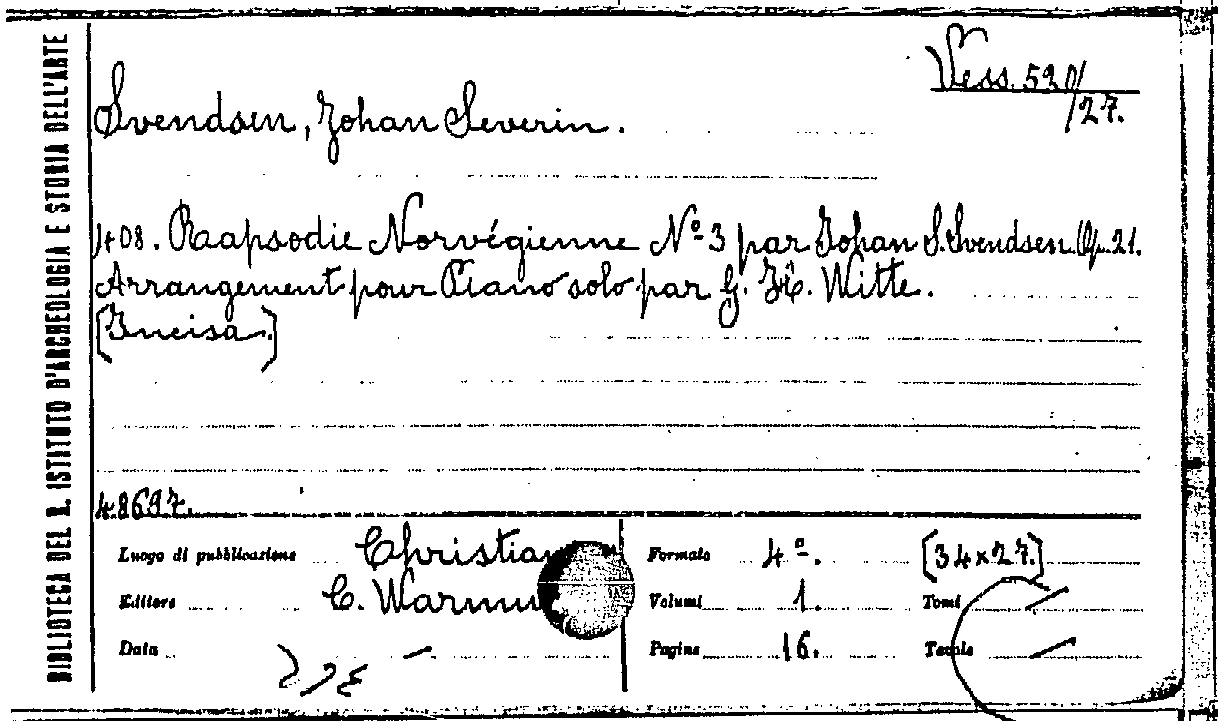 BIBLIOTECA DEL R. ISTITUTO D'ARCHEOLOGIA E STORIA DELL'ARTE
Vess. 520/
/27.
Svendsen, Johan Severin.
408. Rapsodie Norvégienne Nº 3 par Johan S. Svendsen. Op. 21.
Arrangement pour Piano solo par G. H. Witte.
[Incisa.]
48697.
Luogo di pubblicazione Christian
Editore C. Warmu
Data —
Formato 4º. [34x27.]
Volumi 1. Tomi —
Pagine 16. Tavole —